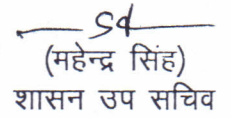 Sd
(महेन्द्र सिंह)
शासन उप सचिव